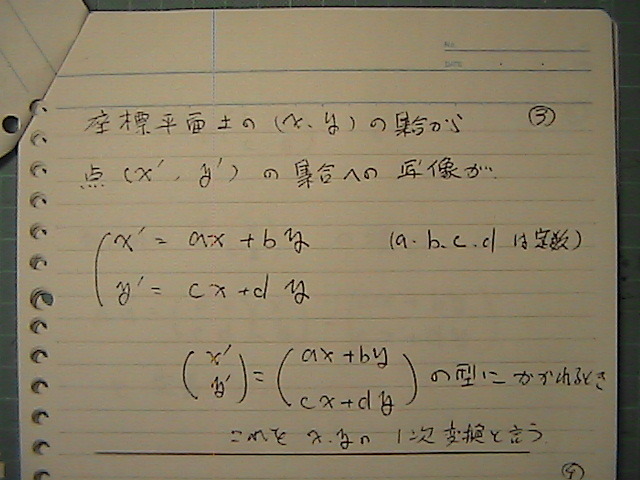 No.
DATE
③
座標平面上の(x、y)の集合から
点(x'、y')の集合への写像が、
x' = ax + by (a.b.c.dは定数)
y' = cx + dy
(x' y') = (ax + by cx + dy) の型にかかれるとき
これを x.yの 1次変換と言う
④